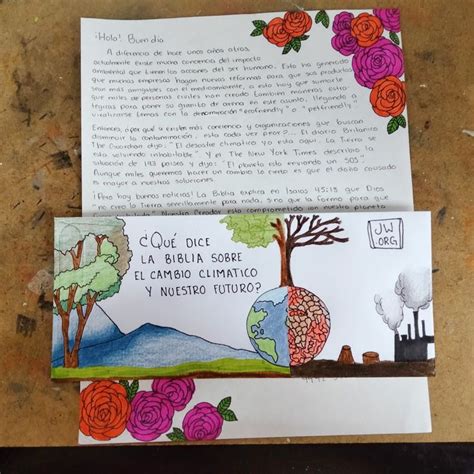 ¡Hola! Buen día
A diferencia de hace unos años atrás,
actualmente existe mucha conciencia del impacto
ambiental que tienen las acciones del ser humano. Esto ha generado
que muchas empresas hagan nuevas reformas para que sus productos
sean más amigables con el medioambiente, a esto hay que sumarle
que miles de personas civiles han creado también maneras estra-
tegicas para poner su granito de arena en este asunto, llegando a
realizarse lemas con la denominación "ecofriendly" o "petfriendly"
Entonces, ¿por qué si existen más conciencia y organizaciones que buscan
disminuir la contaminación, esta cada vez peor?... El diario Británico
The Guardian dijo: "El desastre climático ya está aquí. La Tierra se
está volviendo inhabitable" Y el The New York Times describio la
situación de 193 países y dijo: "El planeta está enviando un SOS"
Aunque miles queremos hacer un cambio lo cierto es que el daño causado
es mayor a nuestras soluciones
¡Pero hay buenas noticias! La Biblia explica en Isaías 45:18 que Dios
no creo la Tierra sencillamente para nada, sino que la formo para que
Nuestro Creador está comprometido con nuestro planeta
¿QUÉ DICE
LA BIBLIA SOBRE
EL CAMBIO CLIMATICO
Y NUESTRO FUTURO?
JW.
ORG